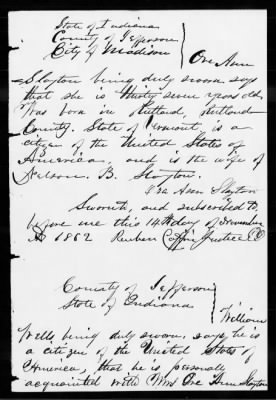 State of Indiana
County of Jefferson
City of Madison
Ora Ann
Slayton being duly sworn says
that she is thirty seven years old
was born in Rutland, Rutland
County. State of Vermont, is a
citizen of the United States of
American, and is the wife of
B. Slayton.
Ora Ann Slayton
Sworn, and subscribed to
before me this 14th day of November
AD 1862 Reuben Justice
County of Jefferson
State of Indiana
William
Wells being duly sworn, says he is
a citizen of the United States of
America, that he is personally
acquainted with Mrs Ora Ann Slayton